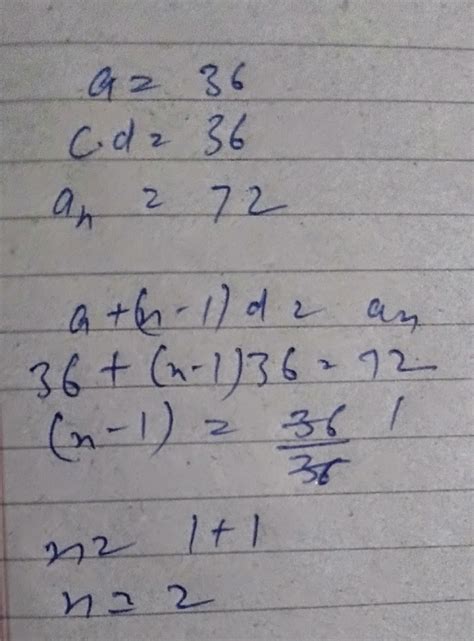 a = 36
c.d = 36
aₙ = 72
a + (n - 1) d = aₙ
36 + (n - 1) 36 = 72
(n - 1) = 36/36 1
n = 1 + 1
n = 2